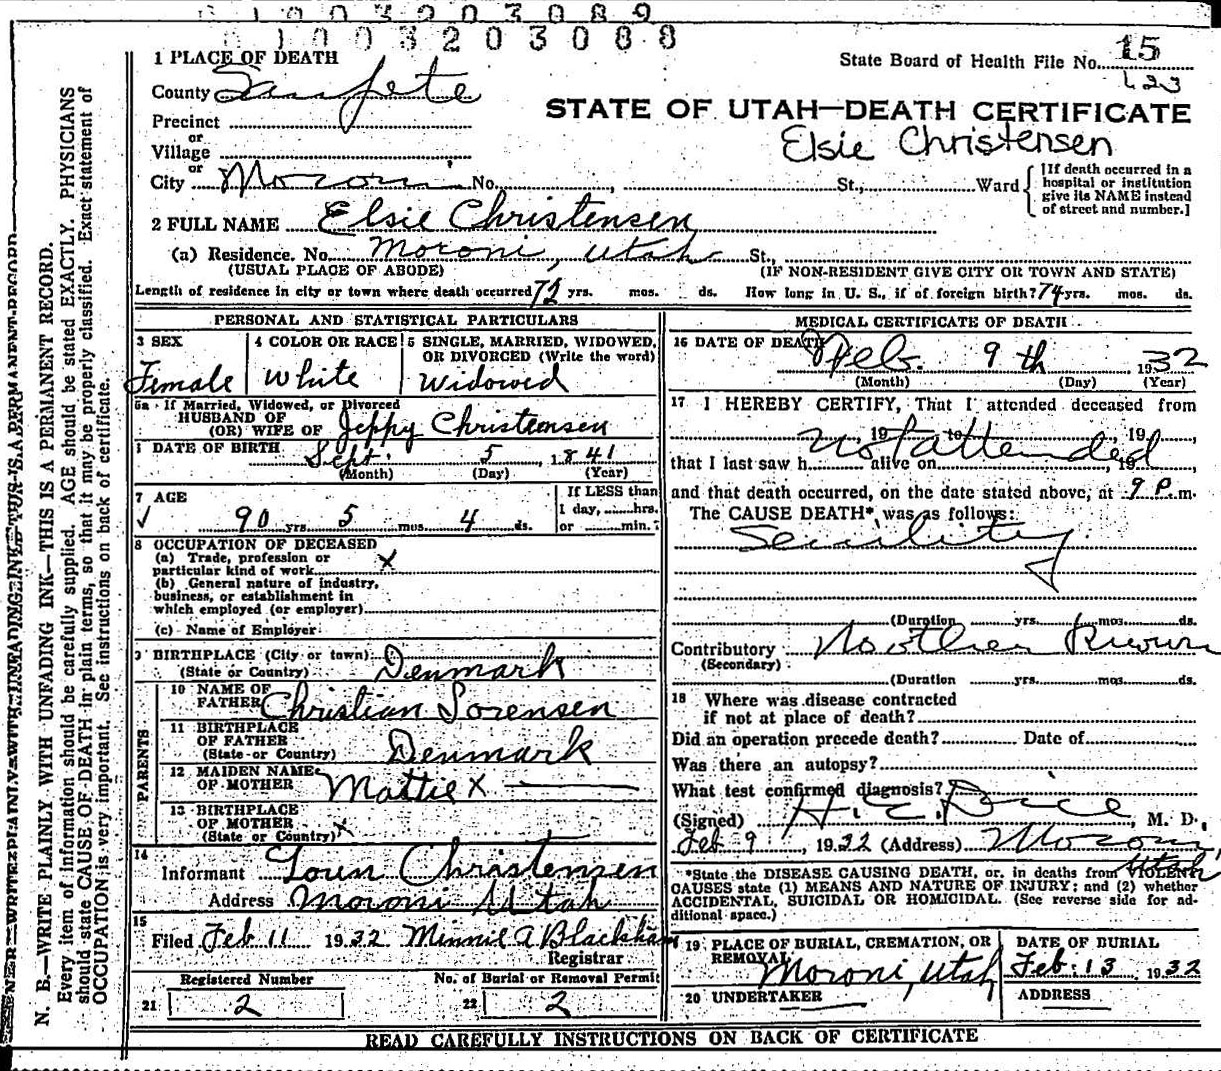 0 1 0 0 3 2 0 3 0 8 9
0 1 0 0 3 2 0 3 0 8 8
State Board of Health File No. 15
1 PLACE OF DEATH
County Sanpete
STATE OF UTAH—DEATH CERTIFICATE
Elsie Christensen
Precinct
or
Village
or
City Moroni No. , St., Ward
[If death occurred in a
hospital or institution
give its NAME instead
of street and number.]
2 FULL NAME Elsie Christensen
(a) Residence. No. Moroni, Utah St.,
(USUAL PLACE OF ABODE) (IF NON-RESIDENT GIVE CITY OR TOWN AND STATE)
Length of residence in city or town where death occurred 72 yrs. mos. ds. How long in U. S., if of foreign birth? 74 yrs. mos. ds.
PERSONAL AND STATISTICAL PARTICULARS
3 SEX 4 COLOR OR RACE 5 SINGLE, MARRIED, WIDOWED,
OR DIVORCED (Write the word)
Female White Widowed
5a If Married, Widowed, or Divorced
HUSBAND OF
(OR) WIFE OF Jeppy Christensen
DATE OF BIRTH Sept. 5, 1841
(Month) (Day) (Year)
7 AGE If LESS than
1 day, hrs.
90 yrs. 5 mos. 4 ds. or min.?
8 OCCUPATION OF DECEASED
(a) Trade, profession or
particular kind of work X
(b) General nature of industry,
business, or establishment in
which employed (or employer)
(c) Name of Employer
9 BIRTHPLACE (City or town)
(State or Country) Denmark
PARENTS
10 NAME OF
FATHER Christian Sorensen
11 BIRTHPLACE
OF FATHER
(State or Country) Denmark
12 MAIDEN NAME
OF MOTHER Mattie X
13 BIRTHPLACE
OF MOTHER
(State or Country) X
14
Informant Christensen
Address Moroni Utah
15
Filed Feb 11 1932 Minnie A Blackham
Registrar
Registered Number No. of Burial or Removal Permit
21 2 22 2
MEDICAL CERTIFICATE OF DEATH
16 DATE OF DEATH Feb. 9th 1932
(Month) (Day) (Year)
17 I HEREBY CERTIFY, That I attended deceased from
, 19 to , 19 ,
not attended
that I last saw h alive on , 19
and that death occurred, on the date stated above, at 9 P. m.
The CAUSE DEATH*, was as follows:
Senility
(Duration yrs. mos. ds.
Contributory No other Known
(Secondary)
(Duration yrs. mos. ds.
18 Where was disease contracted
if not at place of death?
Did an operation precede death? Date of
Was there an autopsy?
What test confirmed diagnosis?
(Signed) H. E. Dice, M. D.
Feb 9, 1932 (Address) Moroni,
Utah
*State the DISEASE CAUSING DEATH, or, in deaths from VIOLENT
CAUSES state (1) MEANS AND NATURE OF INJURY; and (2) whether
ACCIDENTAL, SUICIDAL OR HOMICIDAL. (See reverse side for ad-
ditional space.)
19 PLACE OF BURIAL, CREMATION, OR DATE OF BURIAL
REMOVAL
Moroni, Utah Feb. 13 1932
20 UNDERTAKER ADDRESS
READ CAREFULLY INSTRUCTIONS ON BACK OF CERTIFICATE
N. B.—WRITE PLAINLY WITH UNFADING INK—THIS IS A PERMANENT RECORD.
Every item of information should be carefully supplied. AGE should be stated EXACTLY. PHYSICIANS
should state CAUSE OF DEATH in plain terms, so that it may be properly classified. Exact statement of
OCCUPATION is very important. See instructions on back of certificate.